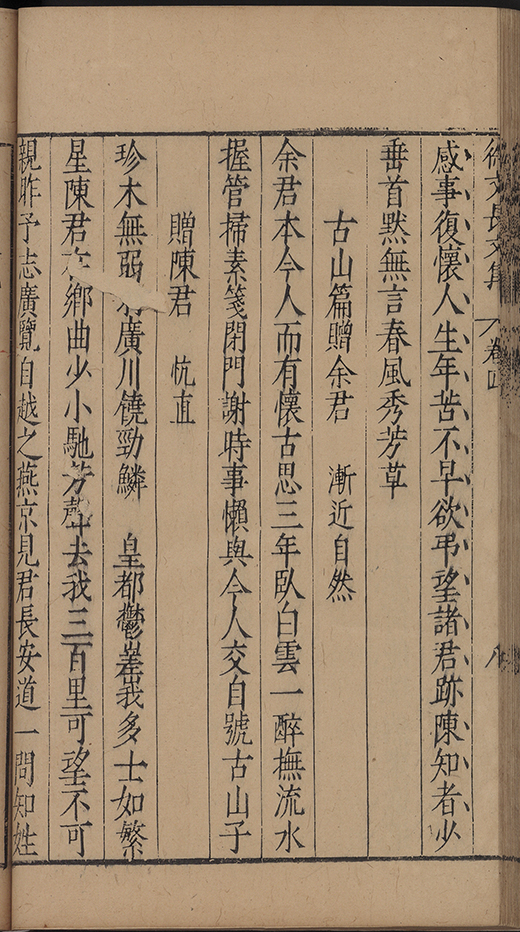 徐文長文集 卷四 八
感事復懷人生年苦不早欲弔望諸君跡陳知者少
垂首黙無言春風秀芳草
古山篇贈余君 漸近自然
余君本今人而有懷古思三年臥白雲一醉撫流水
握管掃素箋閉門謝時事懶與今人交自號古山子
贈陳君 忼直
珍木無弱 廣川饒勁鱗 皇都鬱嵳峩多士如繁
星陳君在鄉曲少小馳芳聲去我三百里可望不可
親昨予志廣覽自越之燕京見君長安道一問知姓